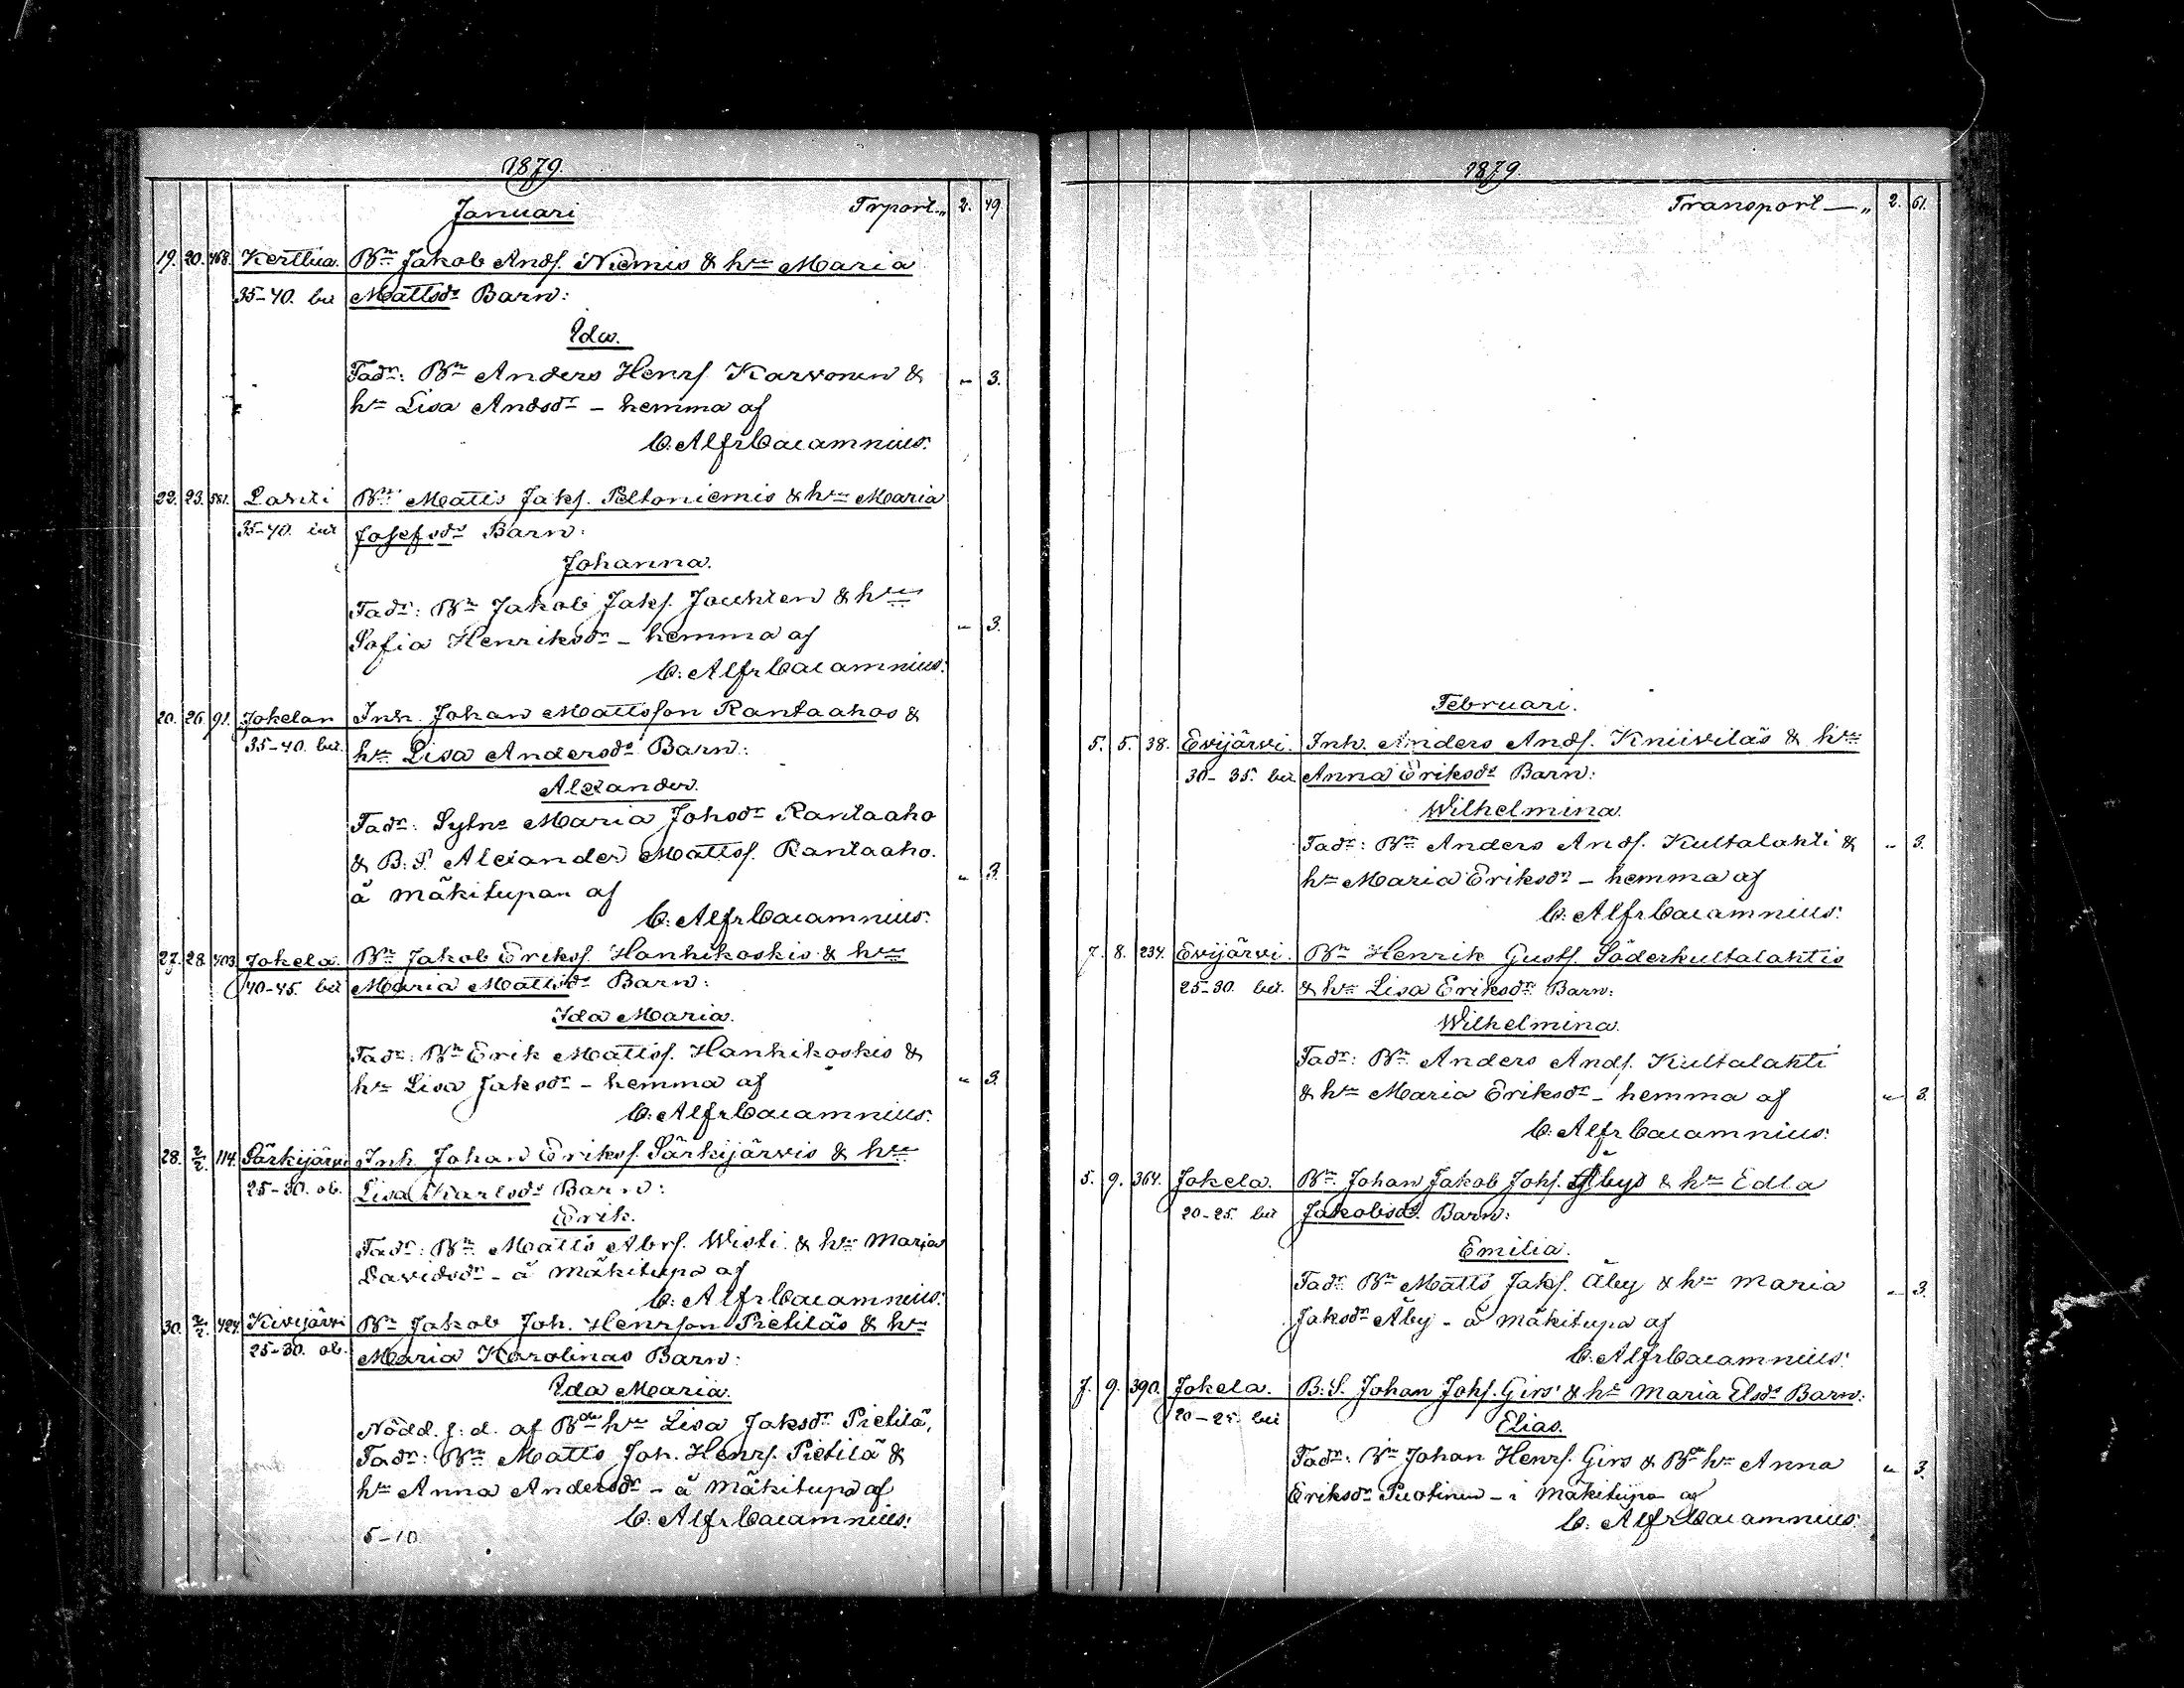 1879.
Januari Trport „ 2. 49.
19. 20. 468. Kerttua. Bn Jakob Ands. Niemis & hn Maria
35-40. bet Mattsdr Barn:
Ida.
Fadr: Bn Anders Henrs. Karvonen & „ 3.
hn Lisa Andsdr - hemma af
C. Alfr Cajamnius.
22. 23. 581. Bn Matts Jaks. Peltoniemis & hn Maria
35-40. Josefsdr Barn:
Johanna.
Fadr: Bn Jakob Jaks. & hn
Sofia Henriksdr - hemma af „ 3.
C. Alfr Cajamnius.
20. 26. 91. Jokelan Inh. Johan Mattsson Rantaahos &
35-40. bet. hn Lisa Andersdr Barn:
Alexander.
Fadr: Sytne Maria Johsdr Rantaaho
& B.S. Alexander Mattss. Rantaaho. „ 3.
å mäkitupan af
C. Alfr Cajamnius.
27. 28. 403. Jokela Bn Jakob Eriks. Hanhikoskis & hn
40-45. bet Maria Mattsdr Barn:
Ida Maria.
Fadr: Bn Erik Mattss. Hanhikoskis &
hn Lisa Jaksdr - hemma af „ 3.
C. Alfr Cajamnius.
28. 2/2. 114. Särkijärvi Inh. Johan Eriks. Särkijärvis & hn
25-30. ob. Lisa Karlsdr Barn:
Erik.
Fadr: Bn Matts Abrs. Wisti & hn Maria
Davidsdr - å mäkitupa af
C. Alfr Cajamnius.
30. 2/2. 424. Kivijärvi Bn Jakob Joh. Henrson Pietiläs & hn
25-30. ob. Maria Karolinas Barn:
Ida Maria.
Nödd. f: d. af Bde hn Lisa Jaksdr Pietilä,
Fadr: Bn Matts Joh. Henrs. Pietilä &
hn Anna Andersdr - å mäkitupa af
C. Alfr Cajamnius.
5-10.
1879.
Transport — „ 2. 61.
Februari.
5. 5. 38. Evijärvi. Inh. Anders Ands. Kniiviläs & hn
30-35. bet Anna Eriksdr Barn:
Wilhelmina.
Fadr: Bn Anders Ands. Kultalahti & „ 3.
hn Maria Eriksdr - hemma af
C. Alfr Cajamnius.
7. 8. 234. Evijärvi. Bn Henrik Gusts. Söderkultalahtis
25-30. bet. & hn Lisa Eriksdr Barn:
Wilhelmina.
Fadr: Bn Anders Ands. Kultalahti
& hn Maria Eriksdr - hemma af „ 3.
C. Alfr Cajamnius.
5. 9. 364. Jokela. Bn Johan Jakob Johs. Åbys & hn Edla
20-25. bet Jakobsdr. Barn:
Emilia.
Fadr: Bn Matts Jaks. Åby & hn Maria „ 3.
Jaksdr Åby - å mäkitupa af
C. Alfr Cajamnius.
7. 9. 390. Jokela. B.S. Johan Johs. Girs' & hn Maria Elsdr Barn:
20-25. bet Elias.
Fadr: Bn Johan Henrs. Girs & Bde hn Anna „ 3.
Eriksdr Puotinen - i mäkitupa af
C. Alfr Cajamnius.